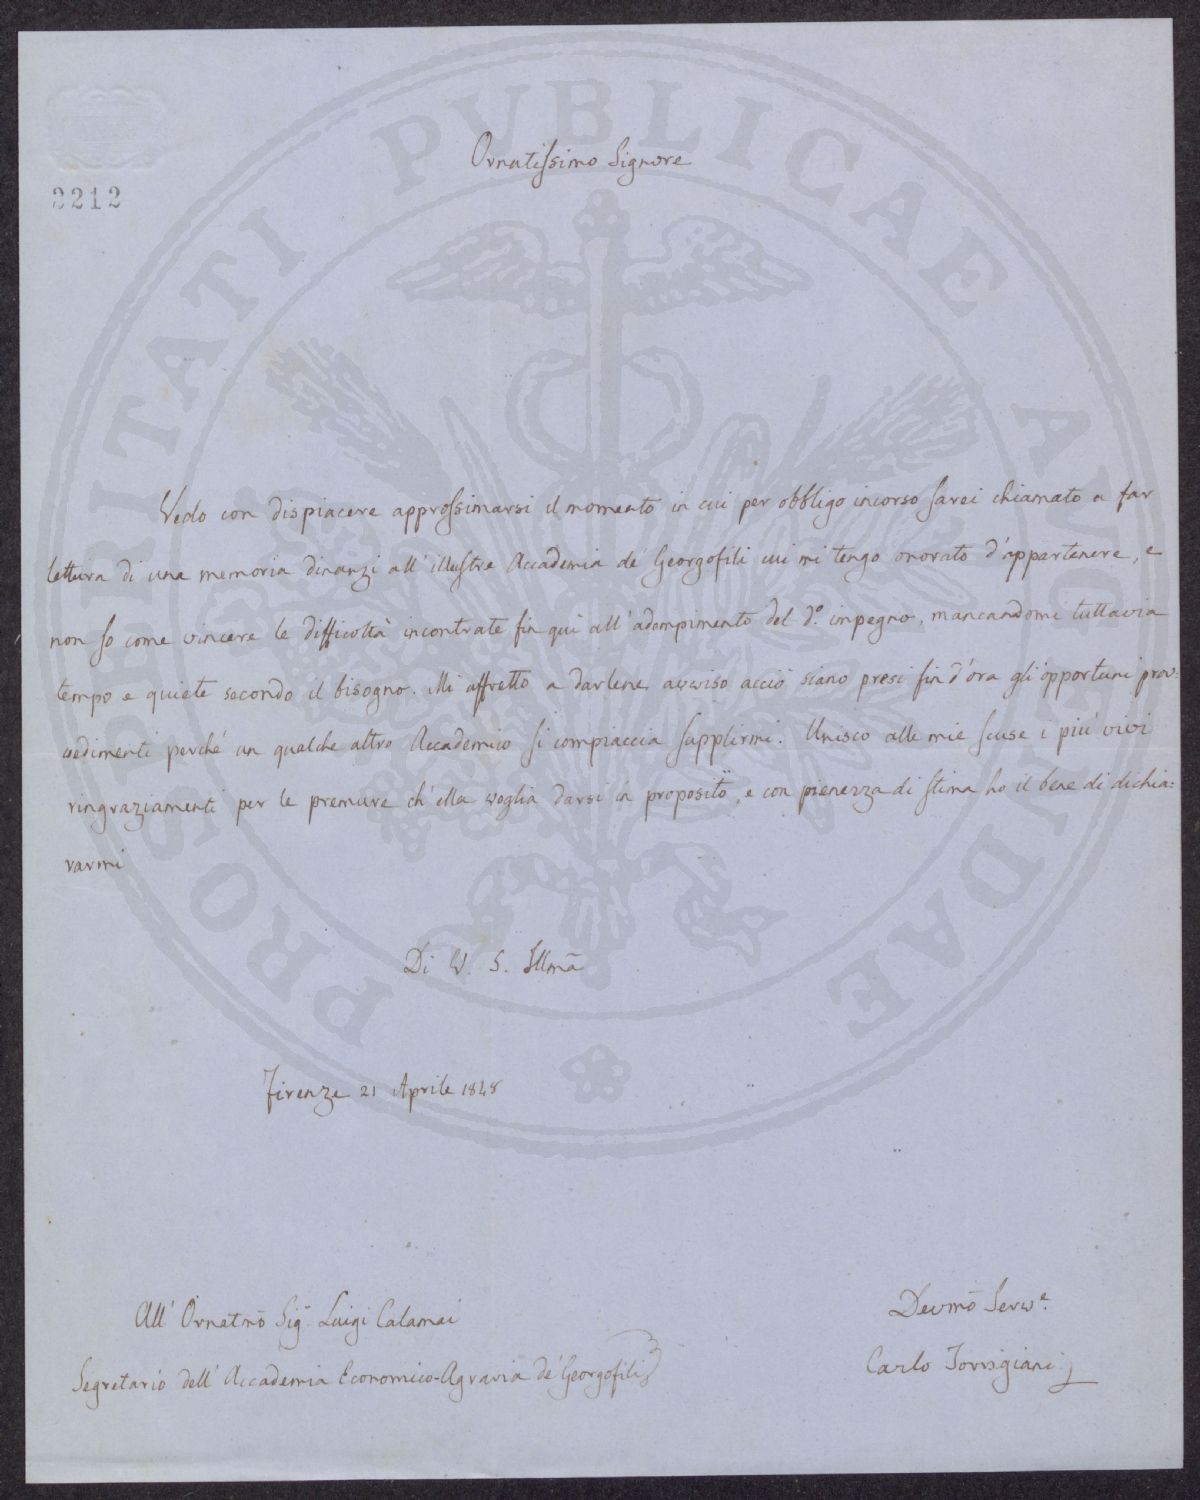 PROSPERITATI PUBLICAE AUGENDAE
2212
Ornatissimo Signore
Vedo con dispiacere approssimarsi il momento in cui per obbligo incorso sarei chiamato a far
lettura di una memoria dinanzi all' illustre Accademia de' Georgofili cui mi tengo onorato d'appartenere, e
non so come vincere le difficoltà incontrate fin qui all' adempimento del do. impegno, mancandomi tuttavia
tempo e quiete secondo il bisogno. Mi affretto a darlene avviso acciò siano presi fin d'ora gli opportuni prov=
vedimenti perché un qualche altro Accademico si compiaccia supplirmi. Unisco alle mie scuse i più vivi
ringraziamenti per le premure ch'ella voglia darsi in proposito, e con pienezza di stima ho il bene di dichia=
rarmi
Di V. S. Illmã
Firenze 21 Aprile 1848
All' Ornatmõ Sigr. Luigi Calamai
Segretario dell' Accademia Economico-Agraria de' Georgofili
Devmõ Serve.
Carlo Torrigiani